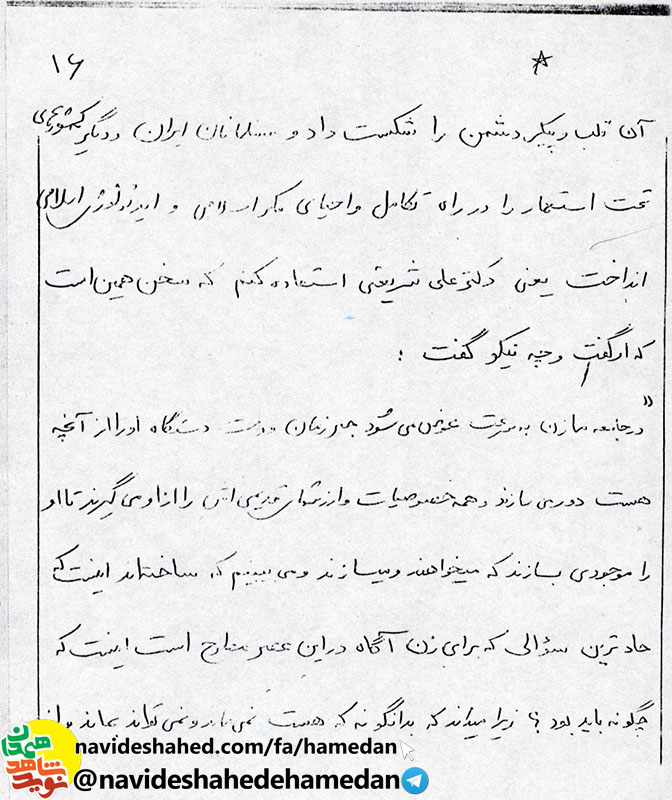 ۱۶
آن قلب و پیکر دشمن را شکست داد و مسلمانان ایران و دیگر کشورهای
تحت استعمار را در راه تکامل و احیای فکر اسلامی و ایدئولوژی اسلامی
انداخت یعنی دکتر علی شریعتی استفاده کنم که سخن همین است
که او گفت و چه نیکو گفت :
"در جامعه ما زن به سرعت عوض می شود جبر زمان و دست دستگاه او را از آنچه
هست دور می سازند و همه خصوصیات و ارزشهای قدیمی اش را از او می گیرند تا او
را موجودی بسازند که میخواهند و میسازند و می بینیم که ساخته‌اند اینست که
حادترین سؤالی که برای زن آگاه در این عصر مطرح است اینست که
چگونه باید بود ؟ زیرا میداند که بدانگونه که هست نمی ماند و نمی تواند بماند
نوید شاهد همدان
navideshahed.com/fa/hamedan
@navideshahedehamedan